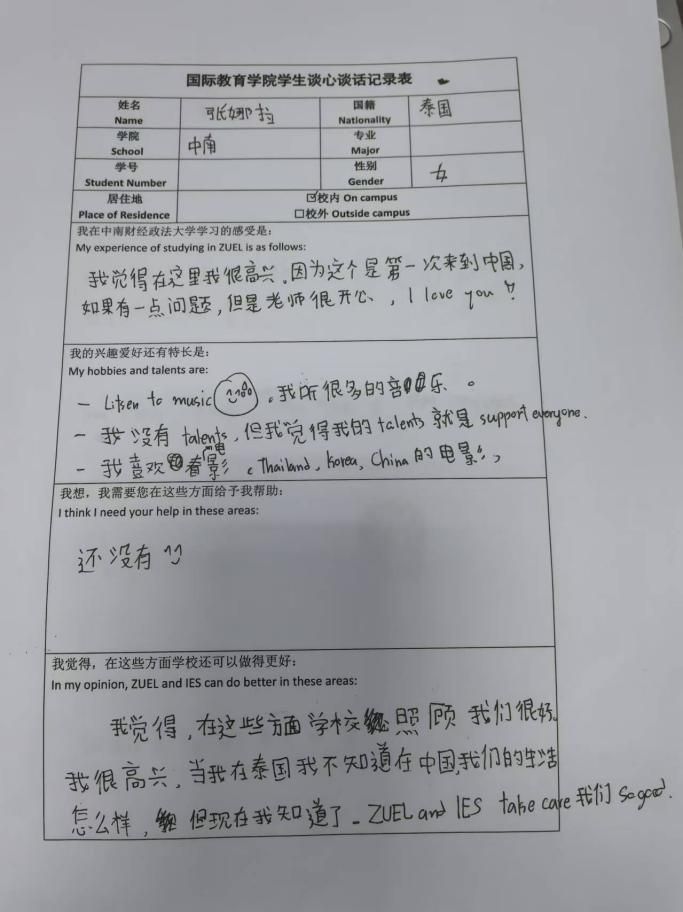 国际教育学院学生谈心谈话记录表
姓名 张娜拉 国籍 泰国
Name Nationality
学院 中南 专业
School Major
学号 性别 女
Student Number Gender
居住地 ☑校内 On campus
Place of Residence □校外 Outside campus
我在中南财经政法大学学习的感受是:
My experience of studying in ZUEL is as follows:
我觉得在这里我很高兴。因为这个是第一次来到中国,
如果有一点问题,但是老师很开心, I love you
我的兴趣爱好还有特长是:
My hobbies and talents are:
- Litsen to music 。我听很多的音乐。
- 我没有 talents, 但我觉得我的 talents 就是 support everyone.
- 我喜欢看电影 (Thailand, Korea, China 的电影)
我想，我需要您在这些方面给予我帮助:
I think I need your help in these areas:
还没有
我觉得，在这些方面学校还可以做得更好:
In my opinion, ZUEL and IES can do better in these areas:
我觉得,在这些方面学校照顾我们很好。
我很高兴,当我在泰国我不知道在中国,我们的生活
怎么样,但现在我知道了。ZUEL and IES take care 我们 so good.